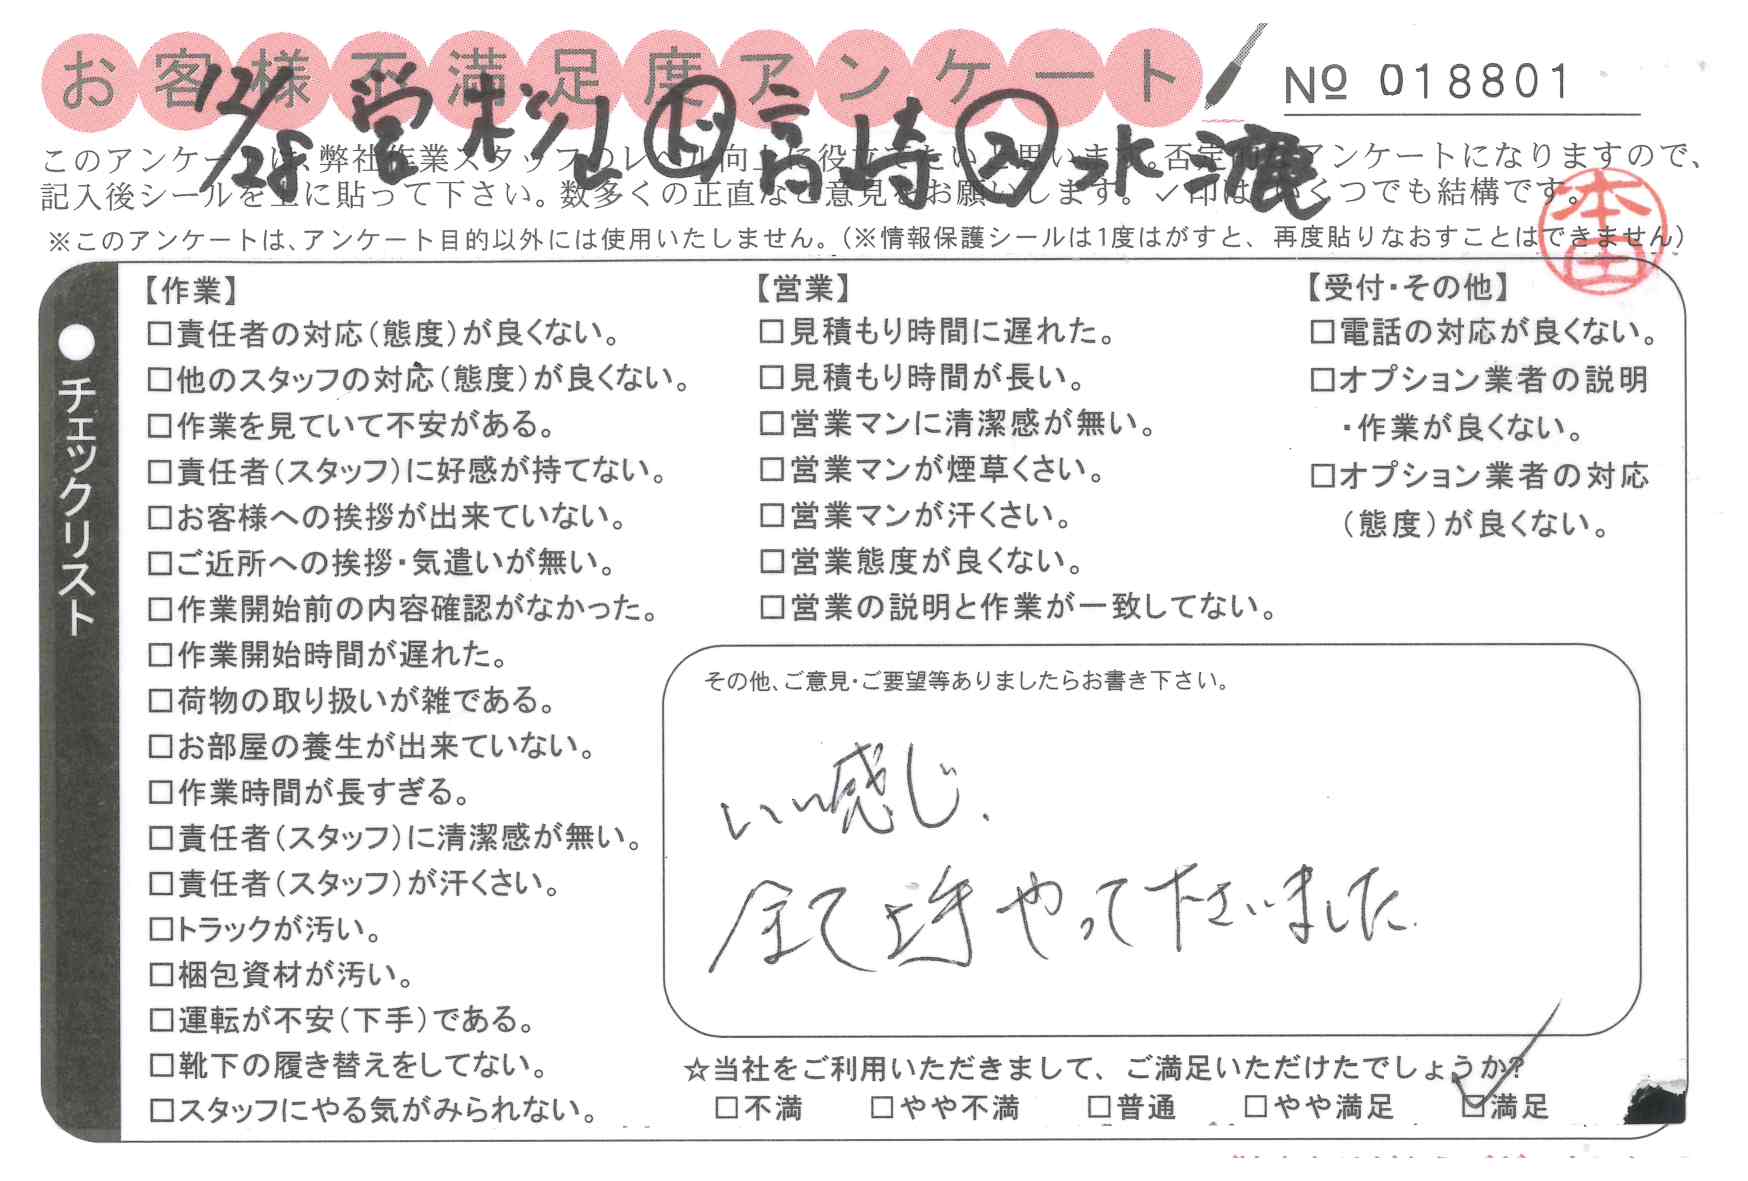 お客様不満足度アンケート
No 018801
12/28 営 松山 ト 高崎 2 水瀧
このアンケートは、弊社作業スタッフのレベル向上に役立てたいと思います。否定的なアンケートになりますので、
記入後シールを上に貼って下さい。数多くの正直なご意見をお願いします。✓印は、いくつでも結構です。
※このアンケートは、アンケート目的以外には使用いたしません。（※情報保護シールは1度はがすと、再度貼りなおすことはできません）
本田
●チェックリスト
【作業】
□責任者の対応（態度）が良くない。
□他のスタッフの対応（態度）が良くない。
□作業を見ていて不安がある。
□責任者（スタッフ）に好感が持てない。
□お客様への挨拶が出来ていない。
□ご近所への挨拶・気遣いが無い。
□作業開始前の内容確認がなかった。
□作業開始時間が遅れた。
□荷物の取り扱いが雑である。
□お部屋の養生が出来ていない。
□作業時間が長すぎる。
□責任者（スタッフ）に清潔感が無い。
□責任者（スタッフ）が汗くさい。
□トラックが汚い。
□梱包資材が汚い。
□運転が不安（下手）である。
□靴下の履き替えをしてない。
□スタッフにやる気がみられない。
【営業】
□見積もり時間に遅れた。
□見積もり時間が長い。
□営業マンに清潔感が無い。
□営業マンが煙草くさい。
□営業マンが汗くさい。
□営業態度が良くない。
□営業の説明と作業が一致してない。
【受付・その他】
□電話の対応が良くない。
□オプション業者の説明
・作業が良くない。
□オプション業者の対応
（態度）が良くない。
その他、ご意見・ご要望等ありましたらお書き下さい。
いい感じ.
全て やって下さいました.
☆当社をご利用いただきまして、ご満足いただけたでしょうか?
□不満 □やや不満 □普通 □やや満足 ☑満足